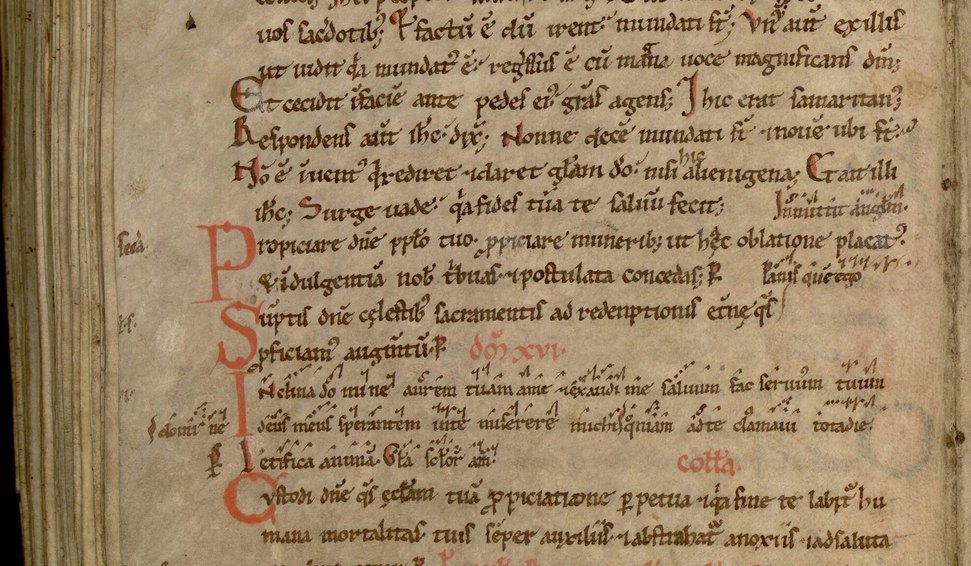 uos sacdotib; ⁊ factũ ẽ dũ irent mundati st̃; Vn᷒ aut̃ ex illis
ut uidit q̃a mundat᷒ ẽ · reg̃ssus ẽ cũ magna uoce magnificans dm̃;
Et cecidit ĩ faciẽ ante pedes ei᷒ · gr̃as agens; ⁊ hic erat samaritan᷒;
Respondens aut̃ ih̃c · dix̃; Nonne decẽ mundati st̃ · ⁊ nouẽ ubi st̃ ·
Nõ ẽ ĩuent᷒ q̃ rediret · ⁊ daret gl̃am dõ · nisi hic alienigena; Et ait illi
ih̃c; Surge uade · q̃a fides tua te saluũ fecit; Inmittit anglm̃ ·
secã
Propiciare dñe pp̃lo tuo · p̃piciare munerib; ut hac oblatione placat᷒ ·
⁊ ĩdulgentiã nob̃ t̃buas · ⁊ postulata concedas; P̃ Panis que ego
Suptis dñe cęlestib᷒ sacramentis ad redenptionis et̃nę q̃s
p̃ficiam᷒ augm̃tũ · P̃ Dom̃ xvi ·
Inclina domine aurem tuam ad me ⁊ exaudi me saluum fac seruum tuum
domi ne deus meus sperantem in te miserere michi dñe q̃niam ad te clamaui tota die
P̃ Letifica animã · Gl̃a sc̃lor̃ am̃
coll̃a ·
Custodi dñe q̃s ęccl̃am tuã p̃piciatione perpetua · ⁊ q̃a sine te labit᷒ hu
mana mortalitas tuis sẽper auxiliis · ⁊ abstrahat᷒ a noxiis · ⁊ ad saluta